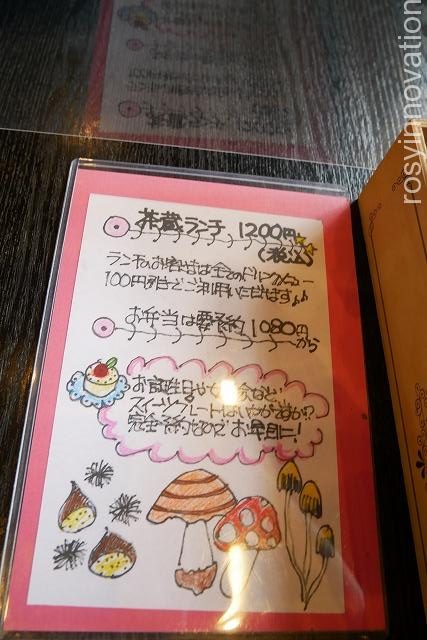 茶蔵ランチ 1200円
(税込)
ランチのお客様は全てのドリンクメニュー
100円引きでご利用いただけます♪
お弁当は要予約 1080円
から
お誕生日や
など
スイーツプレートはいかがですか?
完全予約なので お早目に!
rosyinnovation